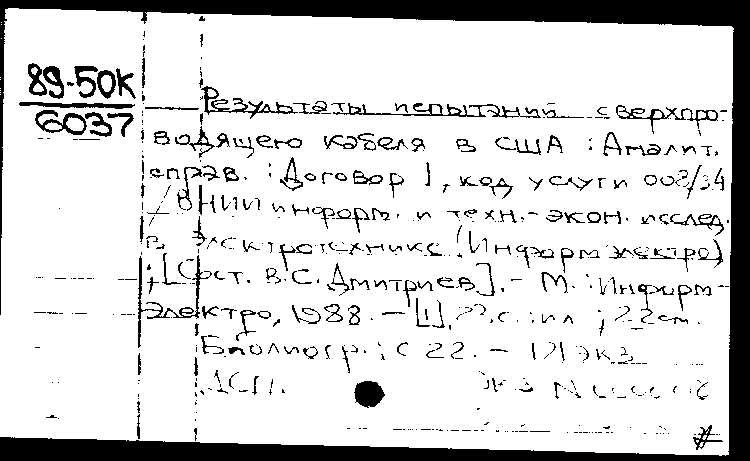 89-50К
6037
Результаты испытаний сверхпро-
водящего кабеля в США : Аналит.
справ. : Договор 1, код услуги 008/34
/ ВНИИ информ. и техн.-экон. исслед.
в электротехнике (Информэлектро)
; [Сост. В.С. Дмитриев]. - М. : Информ-
электро, 1988. - [1], 22 с. : ил ; 22 см.
Библиогр. : с 22. -
ДСП.